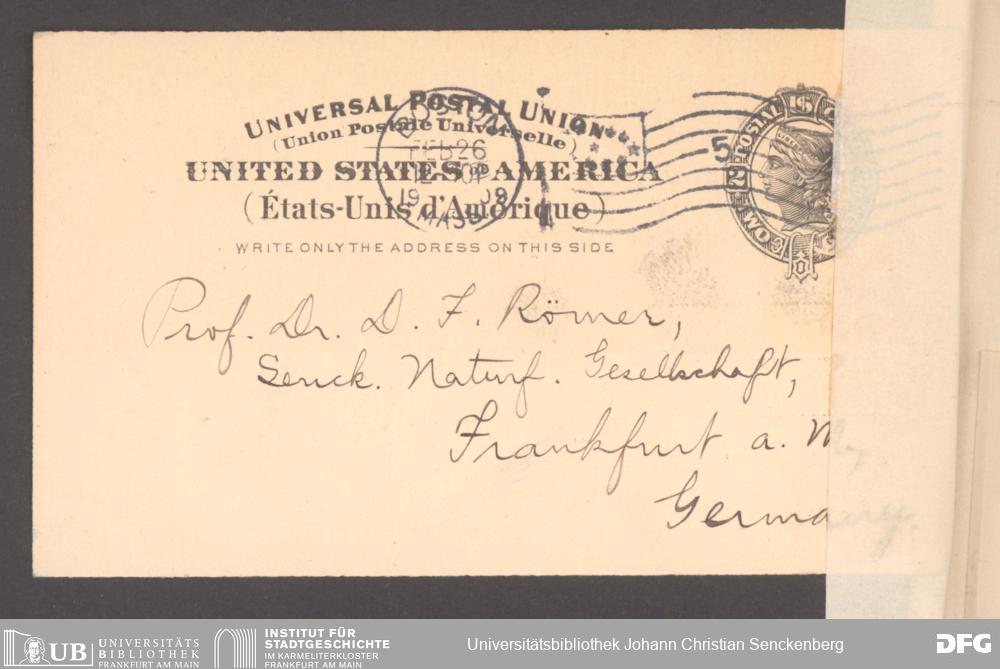 UNIVERSAL POSTAL UNION
(Union Postale Universelle)
UNITED STATES OF AMERICA
(États-Unis d'Amérique)
WRITE ONLY THE ADDRESS ON THIS SIDE
BOSTON
FEB 26
12
MASS
5
POSTAL
2
Prof. Dr. D. F. Römer,
Senck. Naturf. Gesellschaft,
Frankfurt a. M,
Germany.
UB UNIVERSITÄTS
BIBLIOTHEK
FRANKFURT AM MAIN
INSTITUT FÜR
STADTGESCHICHTE
IM KARMELITERKLOSTER
FRANKFURT AM MAIN
Universitätsbibliothek Johann Christian Senckenberg
DFG